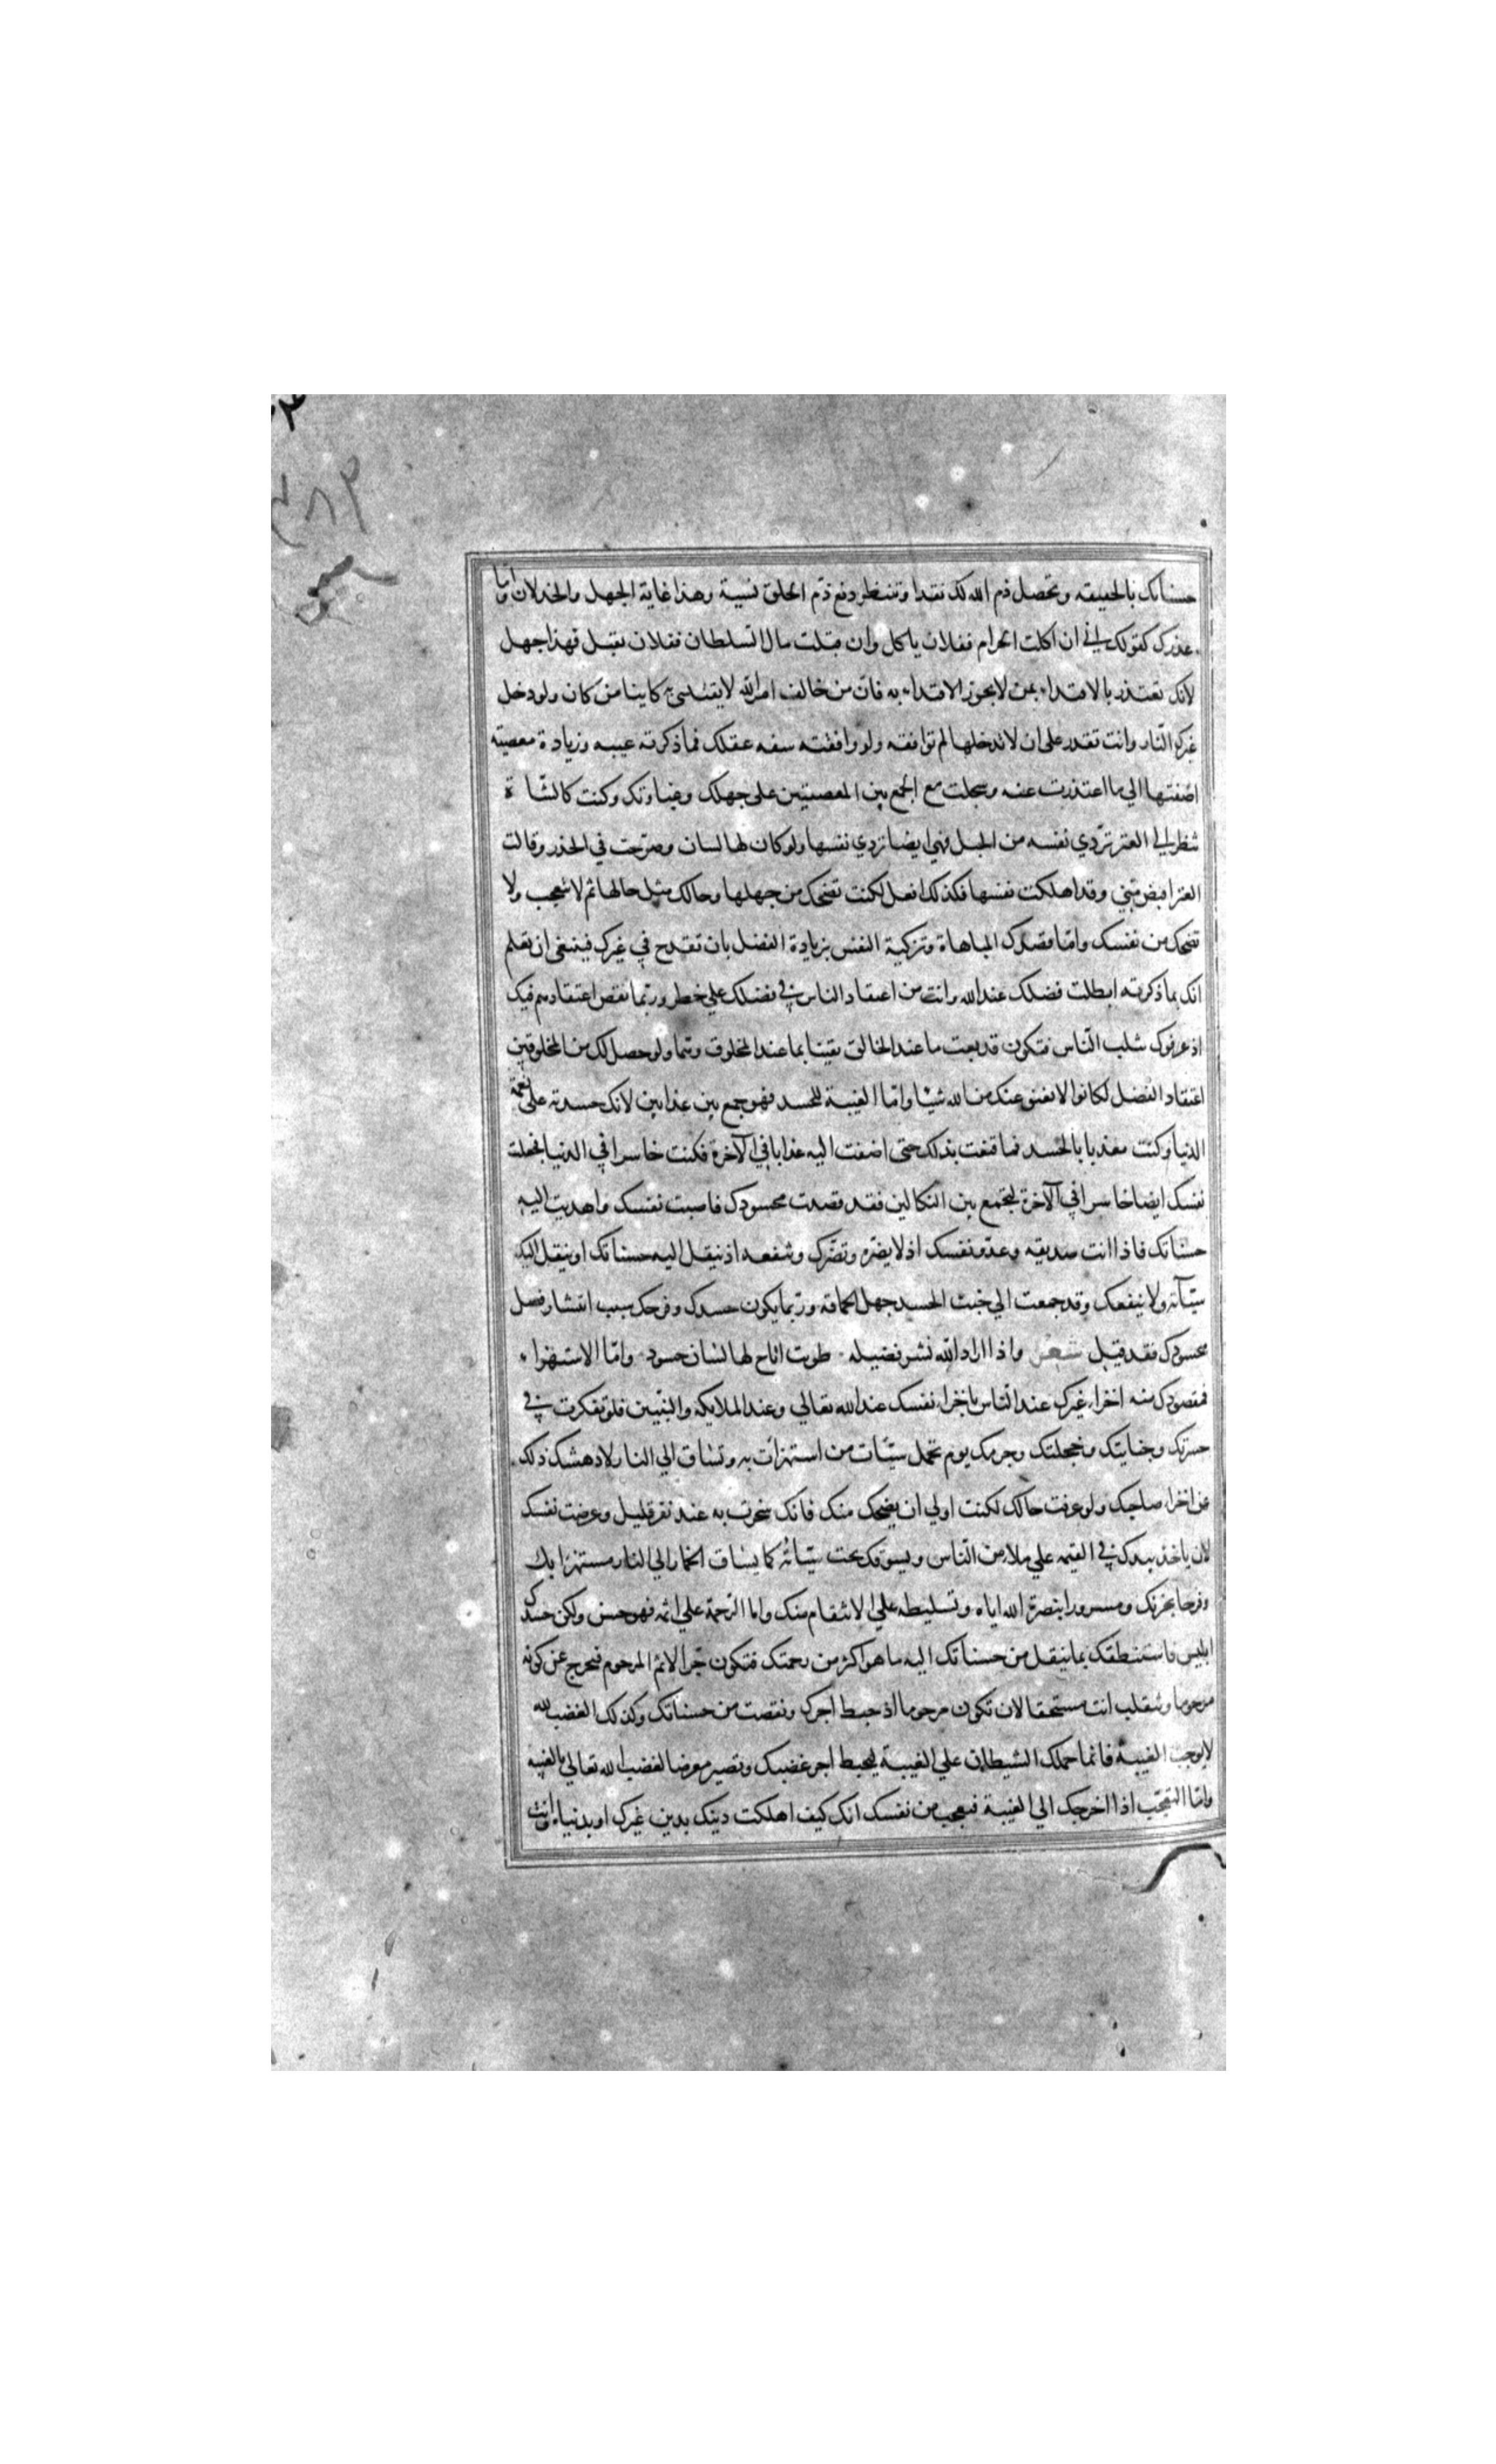 حسناتك بالحقيقه وتحصل ذم الله لك نقدا وتنتظر دفع ذم الخلق نسية وهذا غاية الجهل والخذلان واما
عذرك كقولك اني ان اكلت الحرام ففلان ياكل وان قبلت مال السلطان ففلان يقبل فهذا جهل
لانك تعتذر بالاقتداء بمن لا يجوز الاقتداء به فان من خالف امر الله لا يقتدي به كاينا من كان ولو دخل
غيرك النار وانت تقدر على ان لا تدخلها لم توافقه ولو وافقته سفه عقلك فما ذكرته غيبه وزيادة معصيته
اضفتها الي ما اعتذرت عنه وسجلت مع الجمع بين المعصيتين على جهلك وغباوتك وكنت كالشاة
تنظر الي العنز تردي نفسه من الجبل فهي ايضا تردي نفسها ولو كان لها لسان وصرحت في العذر وقالت
العنز اكيس مني وقد اهلكت نفسها فكذلك افعل لكنت تضحك من جهلها وحالك مثل حالها ثم لا تعجب ولا
تضحك من نفسك واما قصدك المباهاة وتزكية النفس بزيادة الفضل بان تقدح في غيرك فينبغي ان تعلم
انك بما ذكرته ابطلت فضلك عند الله وانت من اعتقاد الناس في فضلك علي خطر وربما نقص اعتقادهم فيك
اذ عرفوك بثلب الناس فتكون قد بعت ما عند الخالق يقينا بما عند المخلوق وهما ولو حصل لك من المخلوقين
اعتقاد الفضل لكانوا لا يغنون عنك من الله شيا واما الغيبة للحسد فهو جمع بين عذابين لانك حسدته على نعمة
الدنيا وكنت معذبا بالحسد فما قنعت بذلك حتى اضفت اليه عذابا في الآخرة فكنت خاسرا في الدنيا فجعلت
نفسك ايضا خاسرا في الآخرة لتجمع بين النكالين فقد قصدت محسودك فاصبت نفسك واهديت اليه
حسناتك فاذا انت صديقه وعدو نفسك اذ لا يضره وتضرك وتنفعه اذ ينقل اليه حسناتك او ينقل اليك
سيآته ولا ينفعك وقد جمعت الي خبث الحسد جهل الحماقه وربما يكون حسدك وقدحك سبب انتشار فضل
محسودك فقد قيل شعر واذا اراد الله نشر فضيله طويت اتاح لها لسان حسود واما الاستهزاء
فمقصودك منه اخزاء غيرك عند الناس باخزاء نفسك عند الله تعالي وعند الملايكه والنبيين فلو تفكرت في
حسرتك وجنايتك وخجلتك وجرمك يوم تحمل سيئات من استهزأت به وتساق الي النار لادهشك ذلك
عن اخزاء صاحبك ولو عرفت حالك لكنت اولي ان يضحك منك فانك سخرت به عند نفر قليل وعرضت نفسك
لان ياخذ بيدك في القيمه علي ملاء من الناس ويسوقك تحت سيئاته كما يساق الحمار الي النار مستهزا بك
وفرحا بخزيك ومسرورا بنصرة الله اياه وتسليطه علي الانتقام منك واما الرحمة علي اثمه فهو حسن ولكن حسدك
ابليس فاستنطقك بما ينقل من حسناتك اليه ما هو اكثر من رحمتك فتكون جبرا لاثم المرحوم فيخرج عن كونه
مرحوما وتنقلب انت مستحقا لان تكون مرحوما اذ حبط اجرك ونقصت من حسناتك وكذلك الغضب لله
لا يوجب الغيبة فانما حملك الشيطان علي الغيبة ليحبط اجر غضبك وتصير معرضا لغضب الله تعالي بالغيبة
واما التعجب اذا اخرجك الي الغيبة فتعجب من نفسك انك كيف اهلكت دينك بدين غيرك او بدنياه وانت